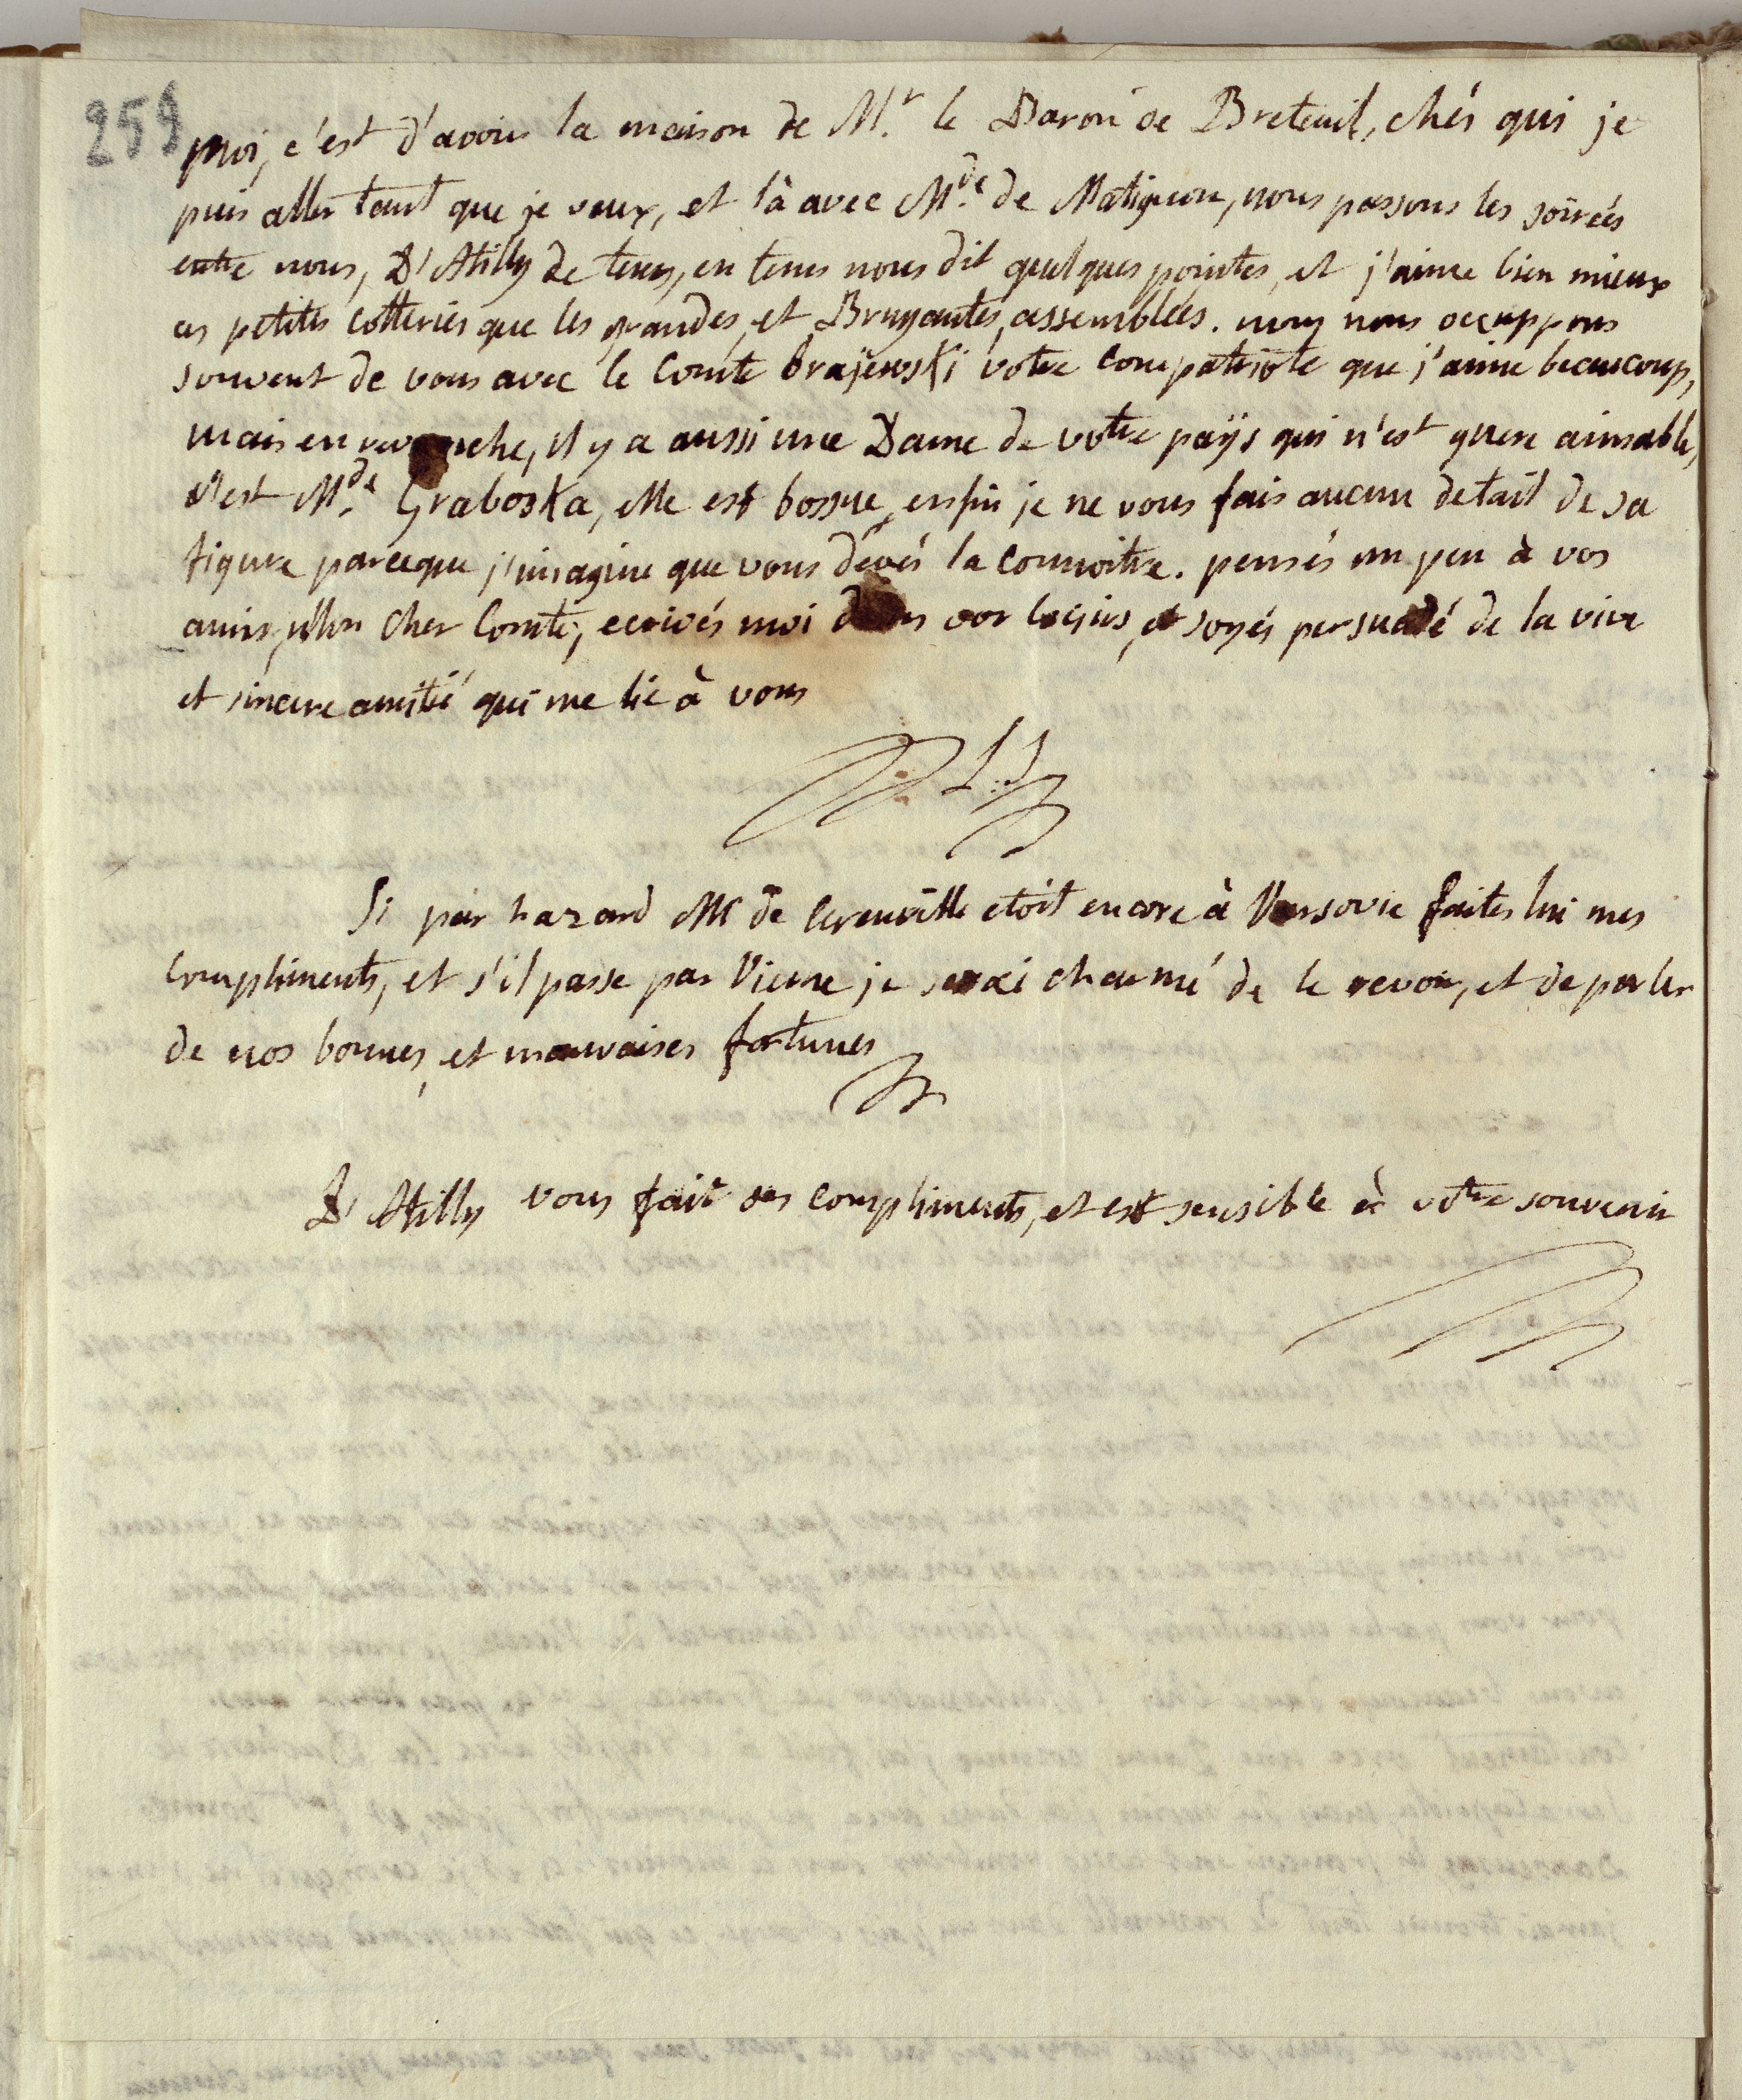 259
moi, c'est d'avoir la maison de Mr. le Baron de Breteuil, chés qui je
puis aller tant que je veux, et là avec Mde. de Matignon, nous passons les soirées
entre nous, D'Atilly de tems, en tems nous dit quelques pointes, et j'aime bien mieux
ces petites cotteries que les grandes, et Bruyantes, assemblées. nous nous occuppons
souvent de vous avec le Comte votre compatriote que j'aime beaucoup,
mais en revanche, il y a aussi une Dame de votre païs qui n'est guere aimable,
c'est Mde. Graboska, elle est bossue, enfin je ne vous fais aucun detail de sa
figure parceque j'imagine que vous dévés la connoitre. pensés un peu à vos
amis, Mon cher Comte, ecrivés moi dans vos loisirs, et soyés persuadé de la vive
et sincere amitié qui me lie à vous
Si par hazard Mr de etoit encore à Varsovie faites lui mes
compliments, et s'il passe par Vienne je serai charmé de le revoir, et de parler
de nos bonnes, et mauvaises fortunes
D'Atilly vous fait ses compliments, et est sensible à votre souvenir